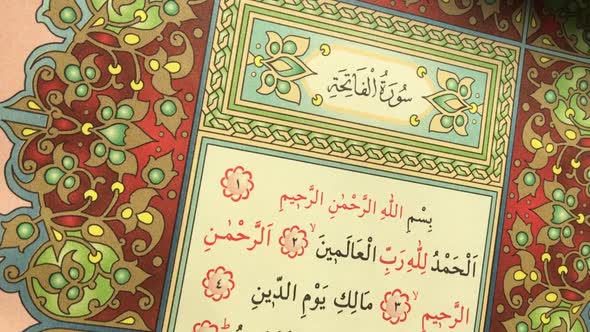 سُورَةُ الْفَاتِحَةِ
بِسْمِ اللّٰهِ الرَّحْمٰنِ الرَّحٖيمِ ١
اَلْحَمْدُ لِلّٰهِ رَبِّ الْعَالَمٖينَۙ ٢ اَلرَّحْمٰنِ
الرَّحٖيمِۙ ٣ مَالِكِ يَوْمِ الدّٖينِ ٤